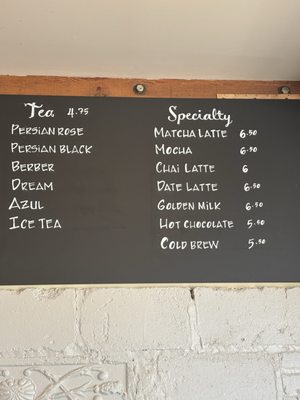 Tea 4.75
Persian Rose
Persian Black
Berber
Dream
Azul
Ice Tea
Specialty
Matcha Latte 6.50
Mocha 6.50
Chai Latte 6
Date Latte 6.50
Golden Milk 6.50
Hot Chocolate 5.50
Cold Brew 5.50